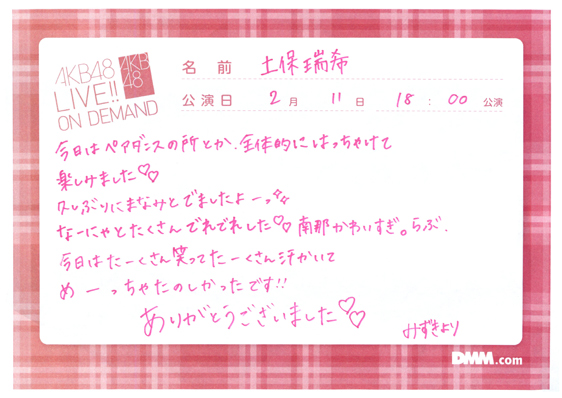 AKB48
LIVE!!
ON DEMAND
AKB
48
名前 土保瑞希
公演日 2月 11日 18:00 公演
今日はペアダンスの所とか、全体的にはっちゃけて
楽しみました♡♡
久しぶりにまなみとでましたよーっ✧✧
なーにゃとたくさんでれでれした♡♡南那かわいすぎ。らぶ.
今日はたーくさん笑ってたーくさん汗かいて
めーっちゃたのしかったです!!
ありがとうございました♡♡
みずきより
DMM.com